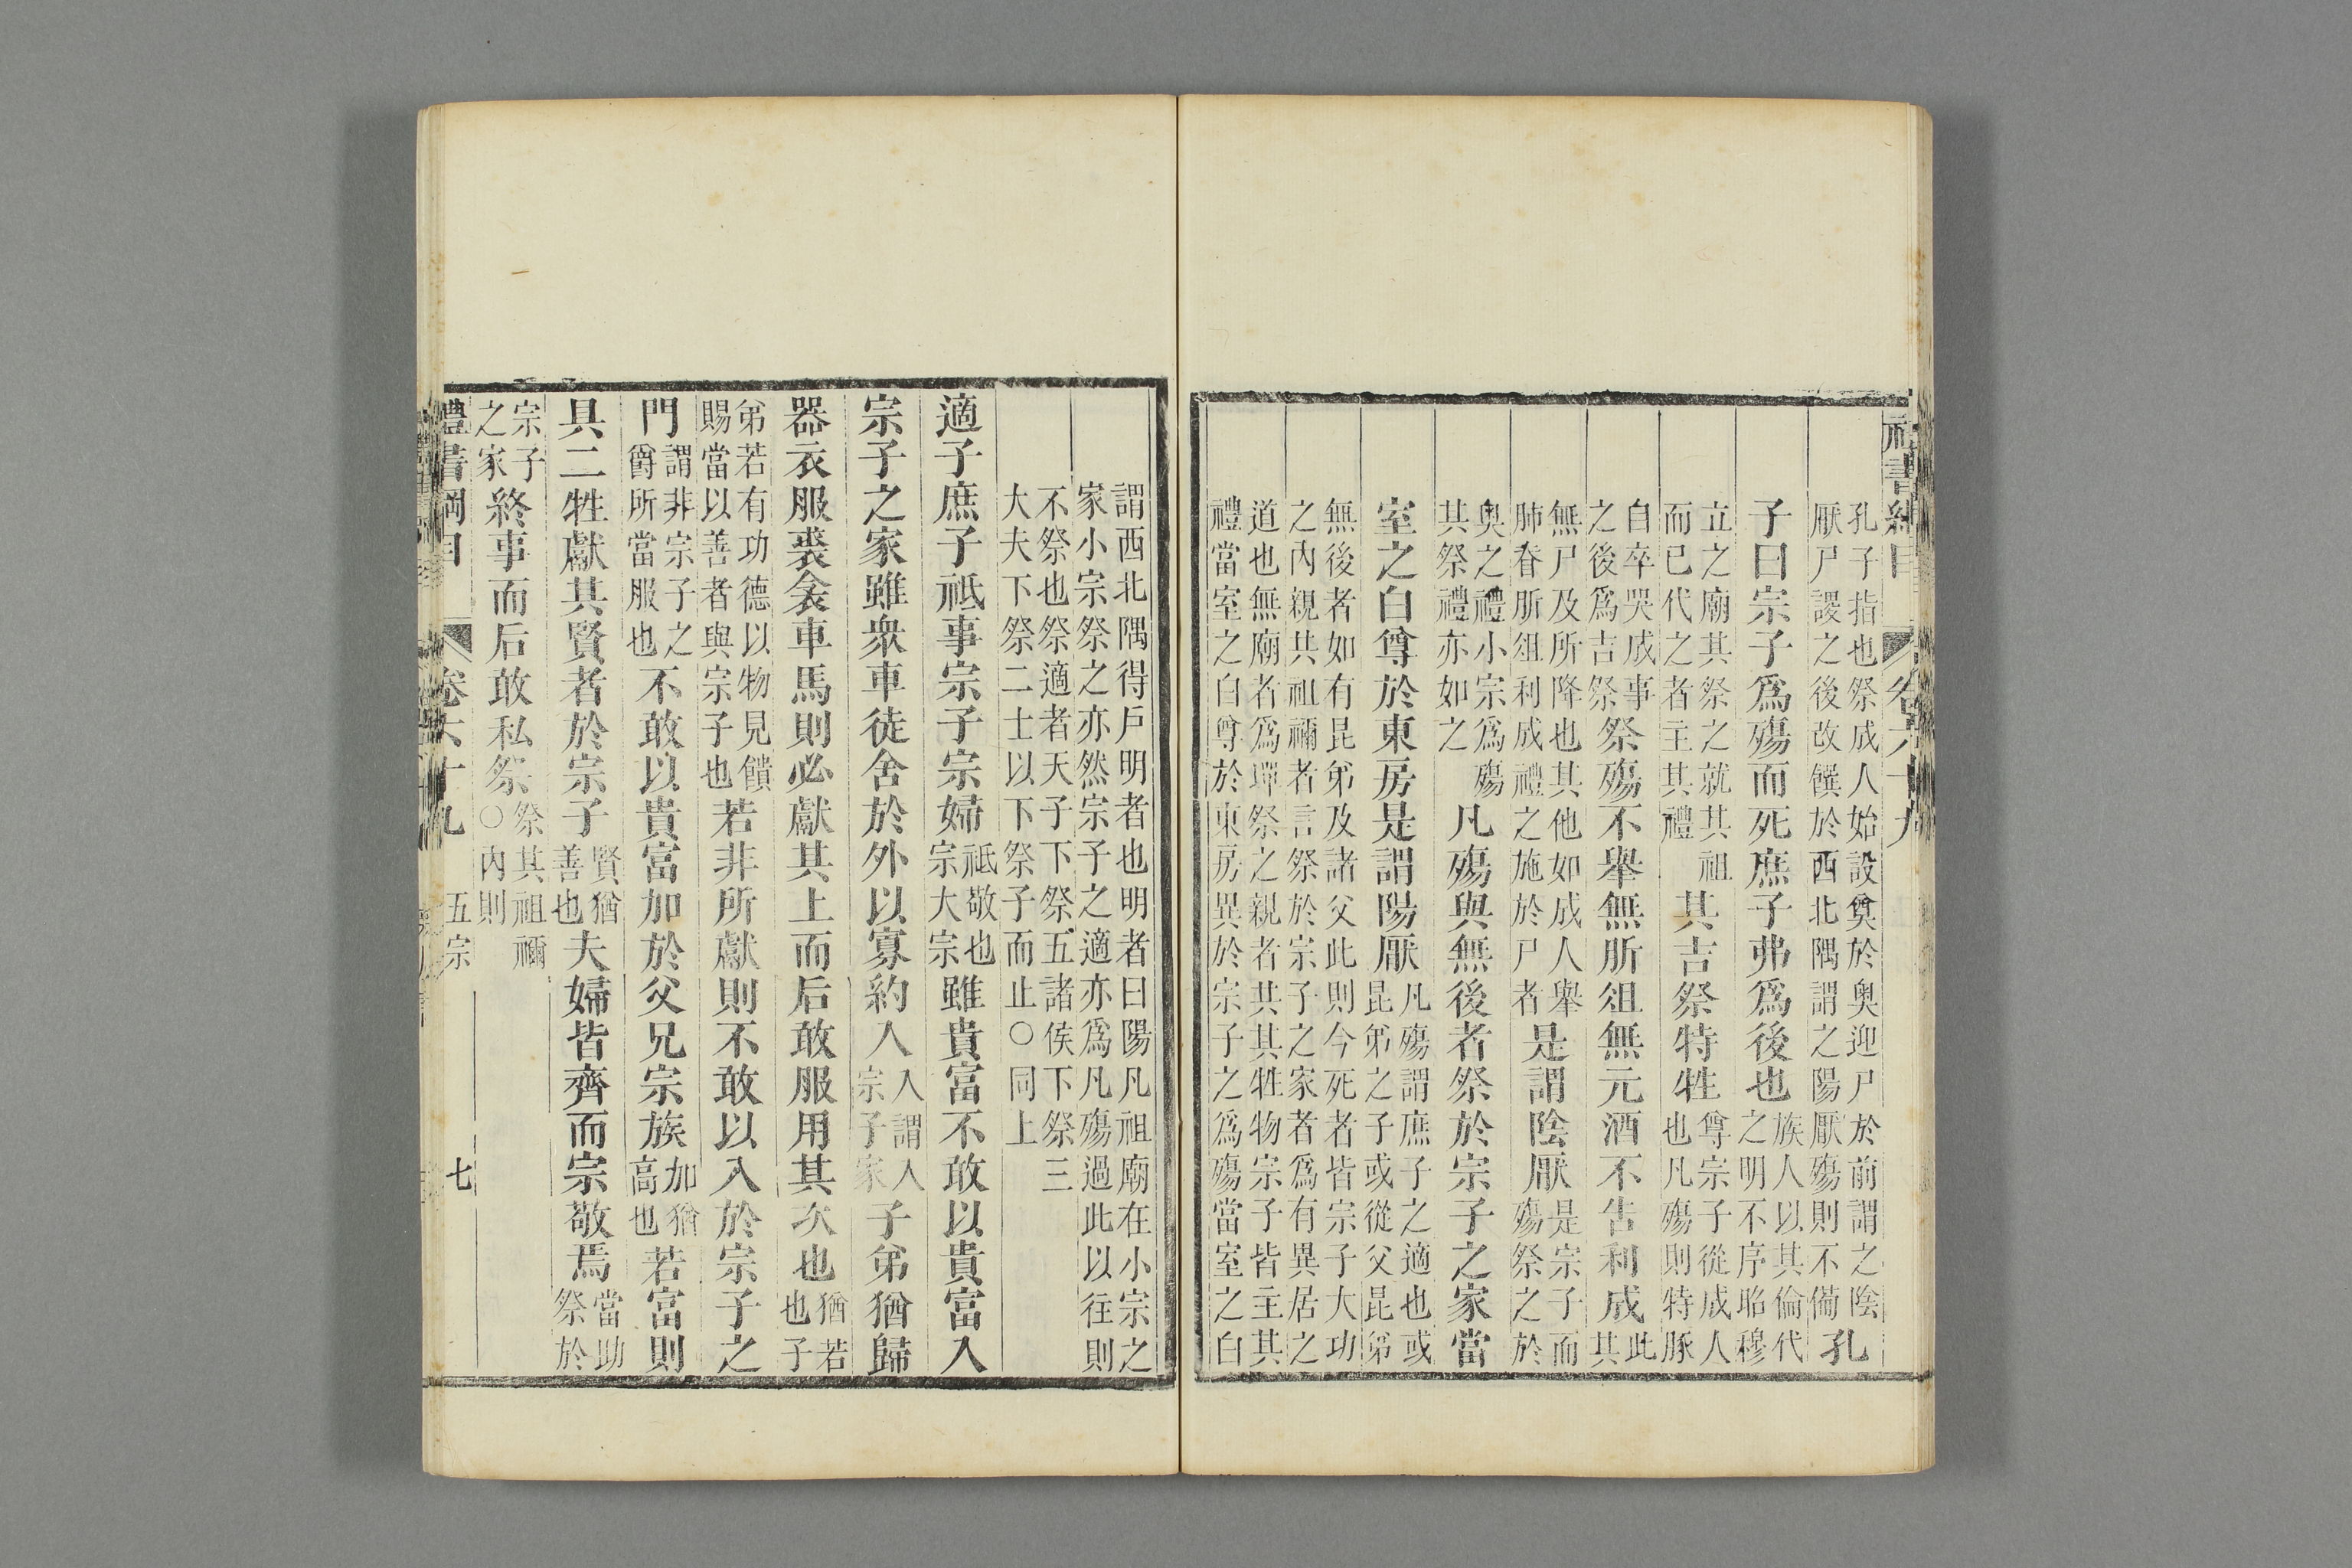 禮書綱目 卷六十九
孔子指也祭成人始設奠於奥迎尸於前謂之陰厭尸謖之後改饌於西北隅謂之陽厭殤則不備孔
子曰宗子爲殤而死庶子弗爲後也族人以其倫代之明不序昭穆
立之廟其祭之就其祖而已代之者主其禮其吉祭特牲尊宗子從成人也凡殤則特豚
自卒哭成事之後爲吉祭祭殤不舉無肵俎無元酒不告利成此其
無尸及所降也其他如成人舉肺脀肵俎利成禮之施於尸者是謂陰厭是宗子而殤祭之於
奥之禮小宗爲殤其祭禮亦如之凡殤與無後者祭於宗子之家當
室之白尊於東房是謂陽厭凡殤謂庶子之適也或昆弟之子或從父昆弟
無後者如有昆弟及諸父此則今死者皆宗子大功之內親共祖禰者言祭於宗子之家者爲有異居之
道也無廟者爲墠祭之親者共其牲物宗子皆主其禮當室之白尊於東房異於宗子之爲殤當室之白
謂西北隅得戶明者也明者曰陽凡祖廟在小宗之家小宗祭之亦然宗子之適亦爲凡殤過此以往則
不祭也祭適者天子下祭五諸侯下祭三大夫下祭二士以下祭子而止○同上
適子庶子祗事宗子宗婦祗敬也宗大宗雖貴富不敢以貴富入
宗子之家雖衆車徒舍於外以寡約入入謂入宗子家子弟猶歸
器衣服裘衾車馬則必獻其上而后敢服用其次也猶若也子
弟若有功德以物見饋賜當以善者與宗子也若非所獻則不敢以入於宗子之
門謂非宗子之爵所當服也不敢以貴富加於父兄宗族加猶高也若富則
具二牲獻其賢者於宗子賢猶善也夫婦皆齊而宗敬焉當助祭於
宗子之家終事而后敢私祭祭其祖禰○內則
禮書綱目 卷六十九 五宗 七